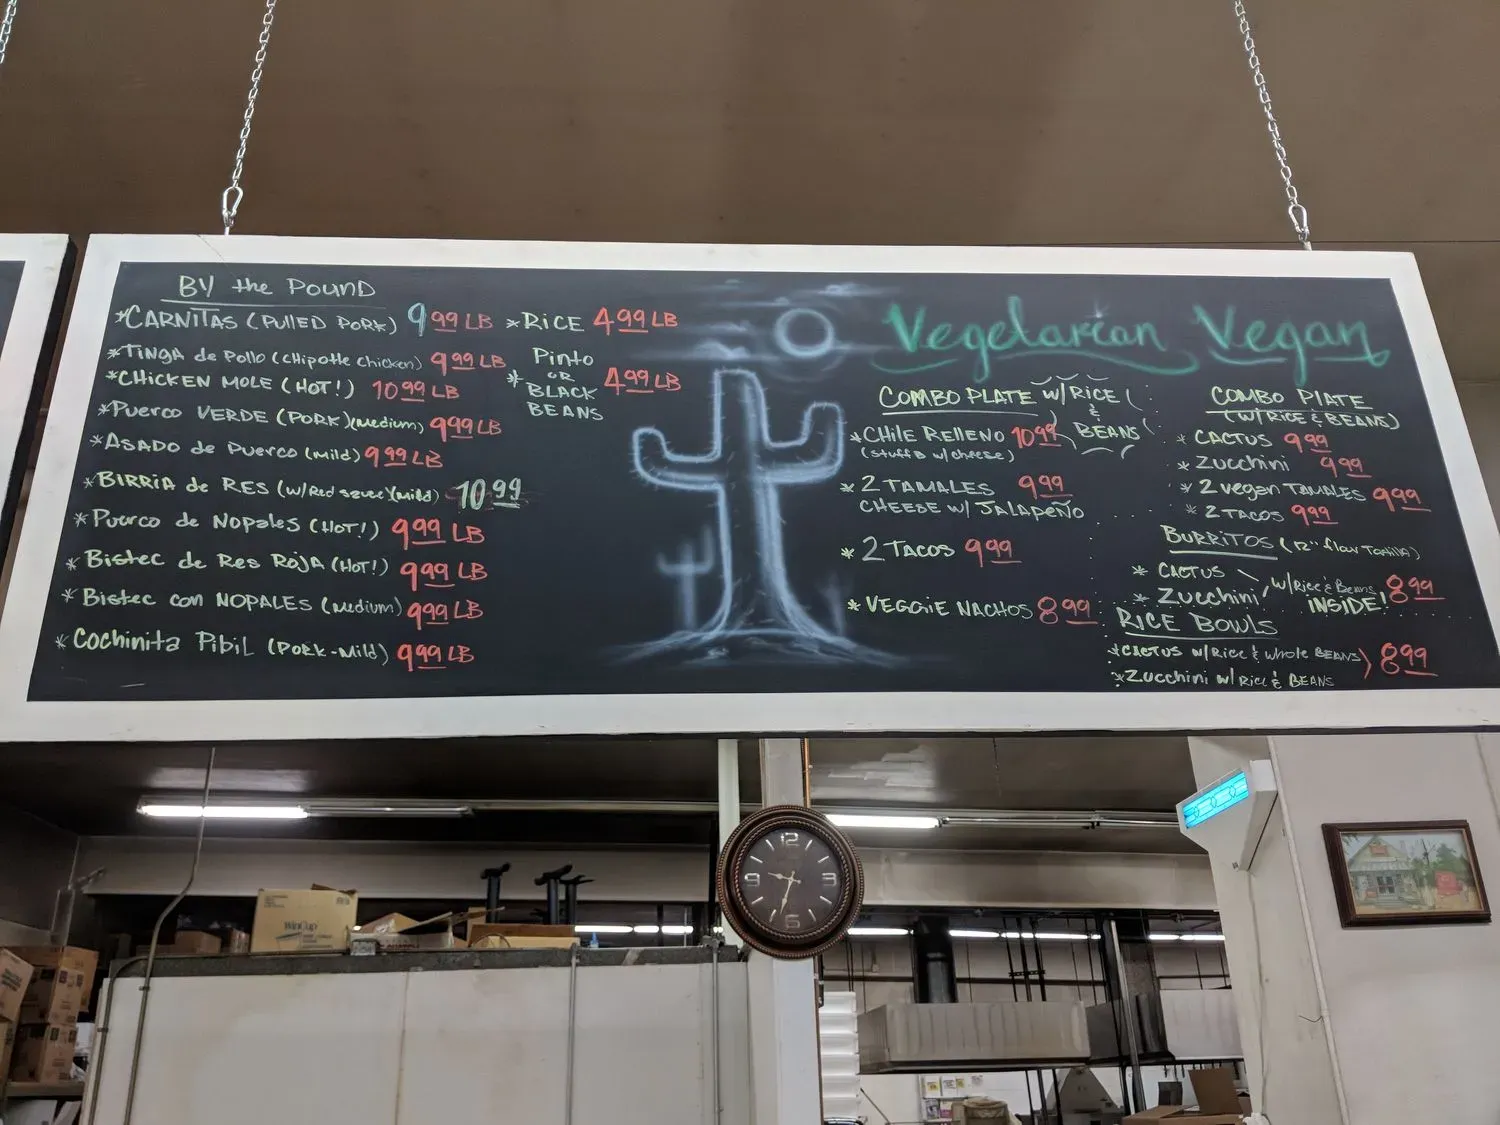 BY the POUND
*CARNITAS (PULLED PORK) 9 99 LB
*TINGA de Pollo (CHipotle chicken) 9 99 LB
*CHICKEN MOLE (HOT!) 10 99 LB
*Puerco VERDE (PORK) (Medium) 9 99 LB
*ASADO de Puerco (Mild) 9 99 LB
*BIRRIA de RES (w/Red sauce) (Mild) 10 99
*Puerco de Nopales (HOT!) 9 99 LB
*Bistec de Res ROJA (HOT!) 9 99 LB
*Bistec con NOPALES (Medium) 9 99 LB
*Cochinita Pibil (PORK-Mild) 9 99 LB
*RICE 4 99 LB
Pinto
OR
* BLACK 4 99 LB
BEANS
Vegetarian Vegan
COMBO PLATE w/RICE
&
BEANS
*CHILE RELLENO 10 99
(stuff D w/cheese)
*2 TAMALES 9 99
CHEESE w/ JALAPEÑO
*2 TACOS 9 99
*VEGGIE NACHOS 8 99
COMBO PLATE
(W/RICE & BEANS)
*CACTUS 9 99
*Zucchini 9 99
*2 vegan TAMALES 9 99
*2 TACOS 9 99
BURRITOS (12" flour Tortilla)
*CACTUS
*Zucchini w/Rice & Beans INSIDE! 8 99
RICE BOWLS
*CACTUS w/Rice & whole BEANS) 8 99
*Zucchini w/ Rice & BEANS
12
9
3
6
WinCup